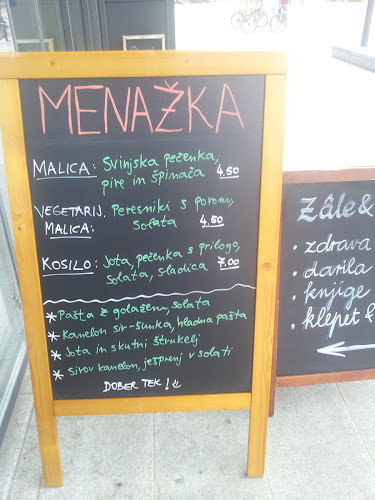 MENAŽKA
MALICA: Svinjska pečenka,
pire in špinača 4.50
VEGETARIJ. Peresniki s porom,
MALICA: solata 4.50
KOSILO: Jota, pečenka s prilogo,
solata, sladica 7.00
* Pašta z golažem, solata
* Kanelon sir-šunka, hladna pašta
* Jota in skutni štrukelj
* Sirov kanelon, ješprenj v solati
DOBER TEK!
Zâle &
• zdrava
• darila
• knjige
• klepet &